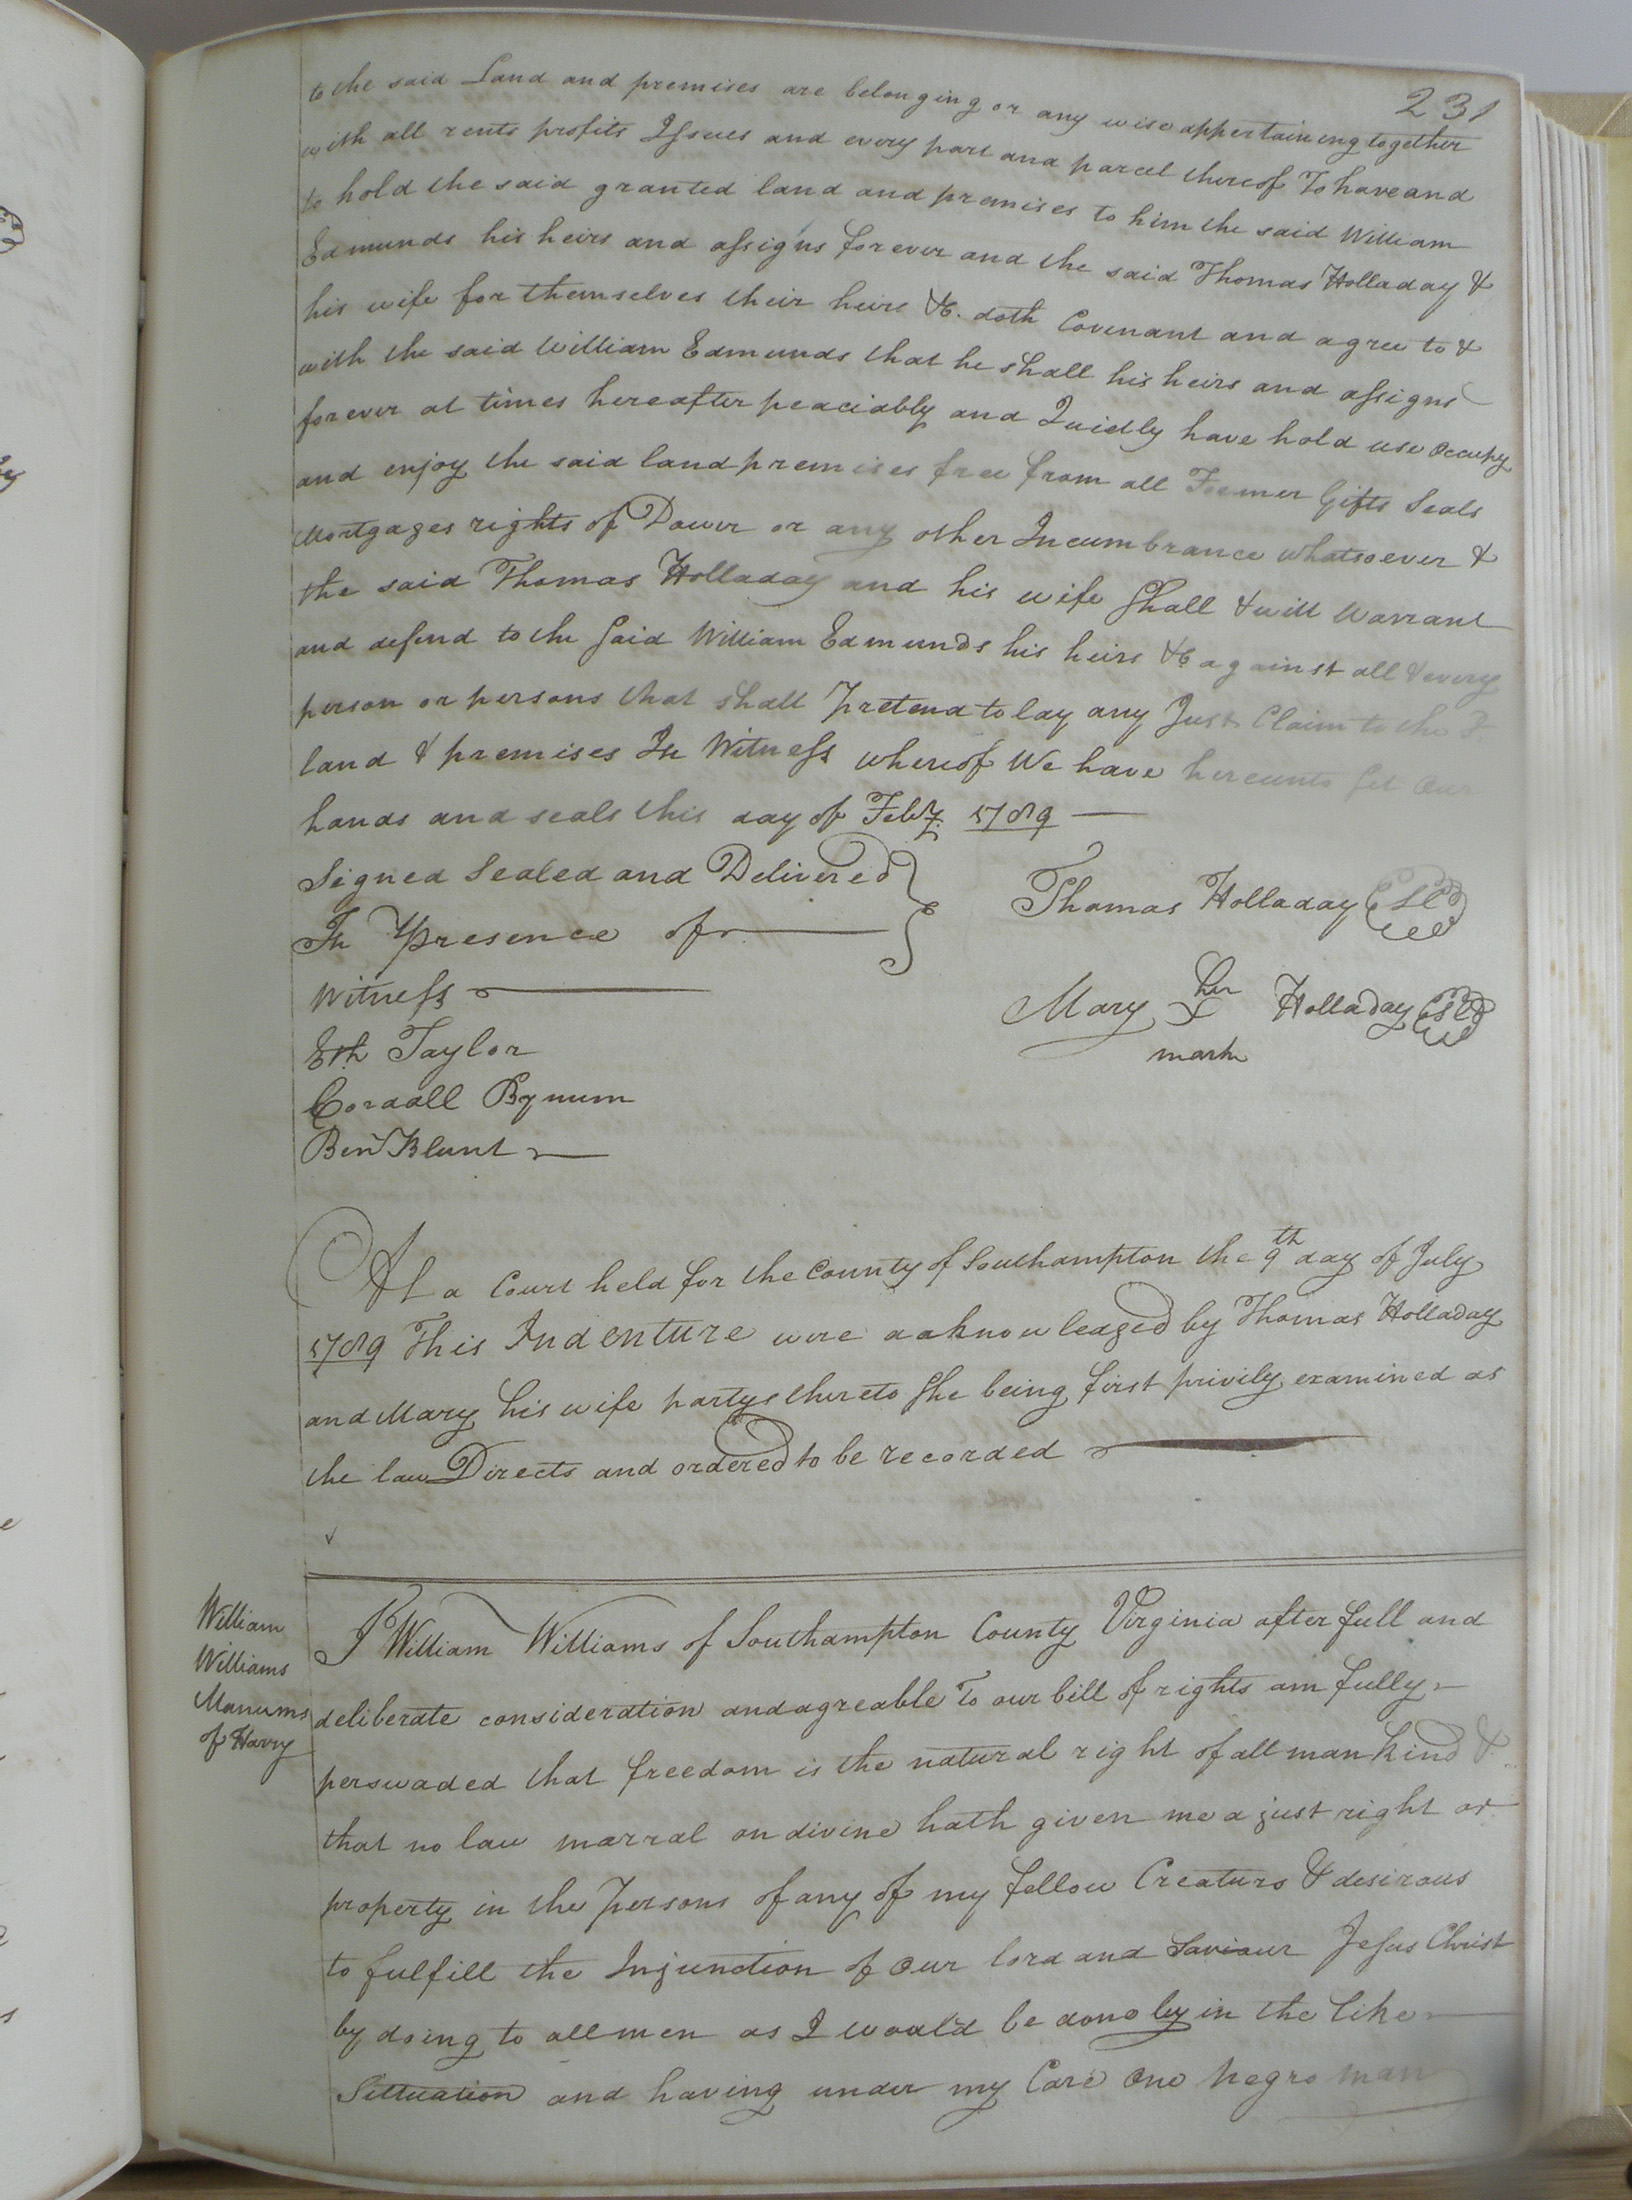 231
to the said Land and premises are belonging or any wise appertaining together
with all rents profits Issues and every part and parcel thereof To have and
to hold the said granted land and premises to him the said William
Edmunds his heirs and assigns for ever and the said Thomas Holladay &
his wife for themselves their heirs &c. doth Covenant and agree to &
with the said William Edmunds that he shall his heirs and assigns
for ever at times hereafter peaciably and Quietly have hold use Occupy
and enjoy the said land premises free from all Former Gifts Seals
Mortgages rights of Dower or any other Incumbrance whatsoever &
the said Thomas Holladay and his wife Shall & will Warrant
and defend to the Said William Edmunds his heirs &c against all & every
person or persons that shall Pretend to lay any Just Claim to the Sd
land & premises In Witness whereof We have hereunto Set Our
hands and seals this day of Feby. 1789
Signed Sealed and Delivered
In Presence of
Thomas Holladay (LS)
Witness
Mary her X mark Holladay (LS)
Eth Taylor
Cordall Bynum
Benn Blunt
At a Court held for the County of Southampton the 9th day of July
1789 This Indenture were acknowledged by Thomas Holladay
and Mary his wife partys thereto She being first privily examined as
the law Directs and ordered to be recorded
William
Williams
Manums
of Harry
I William Williams of Southampton County Virginia after full and
deliberate consideration and agreable To our bill of rights am fully
perswaded that freedom is the natural right of all mankind &
that no law marral or divine hath given me a just right or
property in the Persons of any of my fellow Creaturs & desirous
to fulfill the Injunction of Our lord and Saviour Jesus Christ
by doing to all men as I would be done by in the like
Sittuation and having under my Care One Negro man